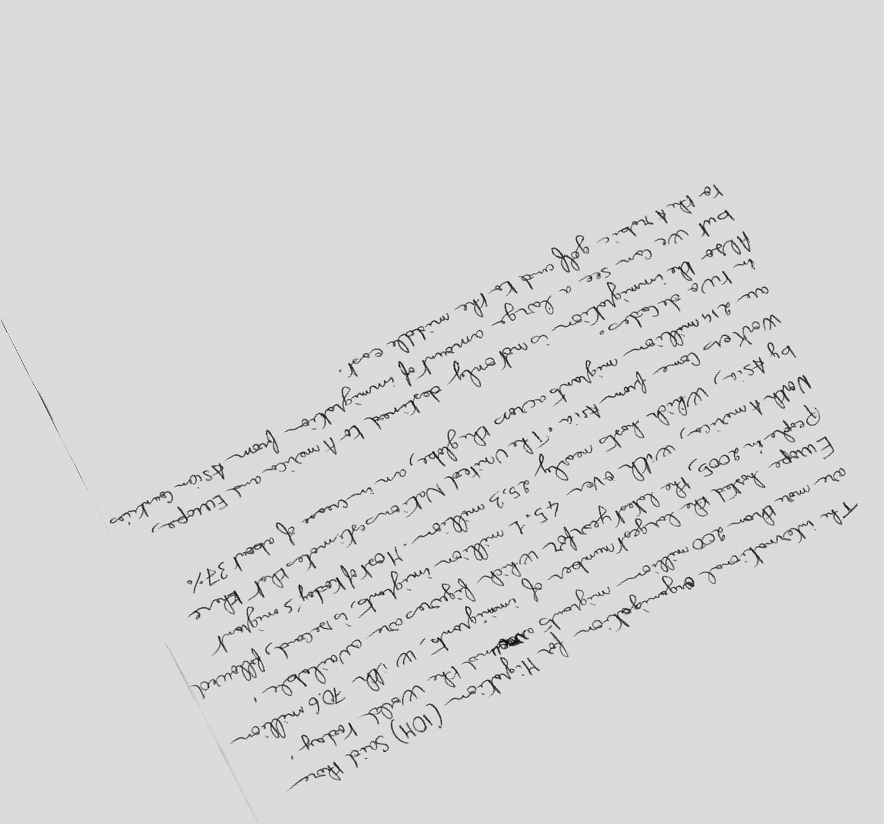 The international Organization for Migration (IOM) Said there
are more than 200 million migrants around the world today.
Europe hosted the largest number of immigrants, with 70.6 million
People in 2005, the latest year for which figures are available.
North America, with over 45.1 million imigrants, is second, followed
by Asia, which hosts nearly 25.3 million. Most of today's migrant
workers come from Asia. The United Nations estimates that there
are 214 million migrants across the globe, an increase of about 37%
in two decades.
Also the immigration is not only destined to America and Europe,
but we can see a large amount of immigration from Asian Countries
To the Arabic golf and to the middle east.